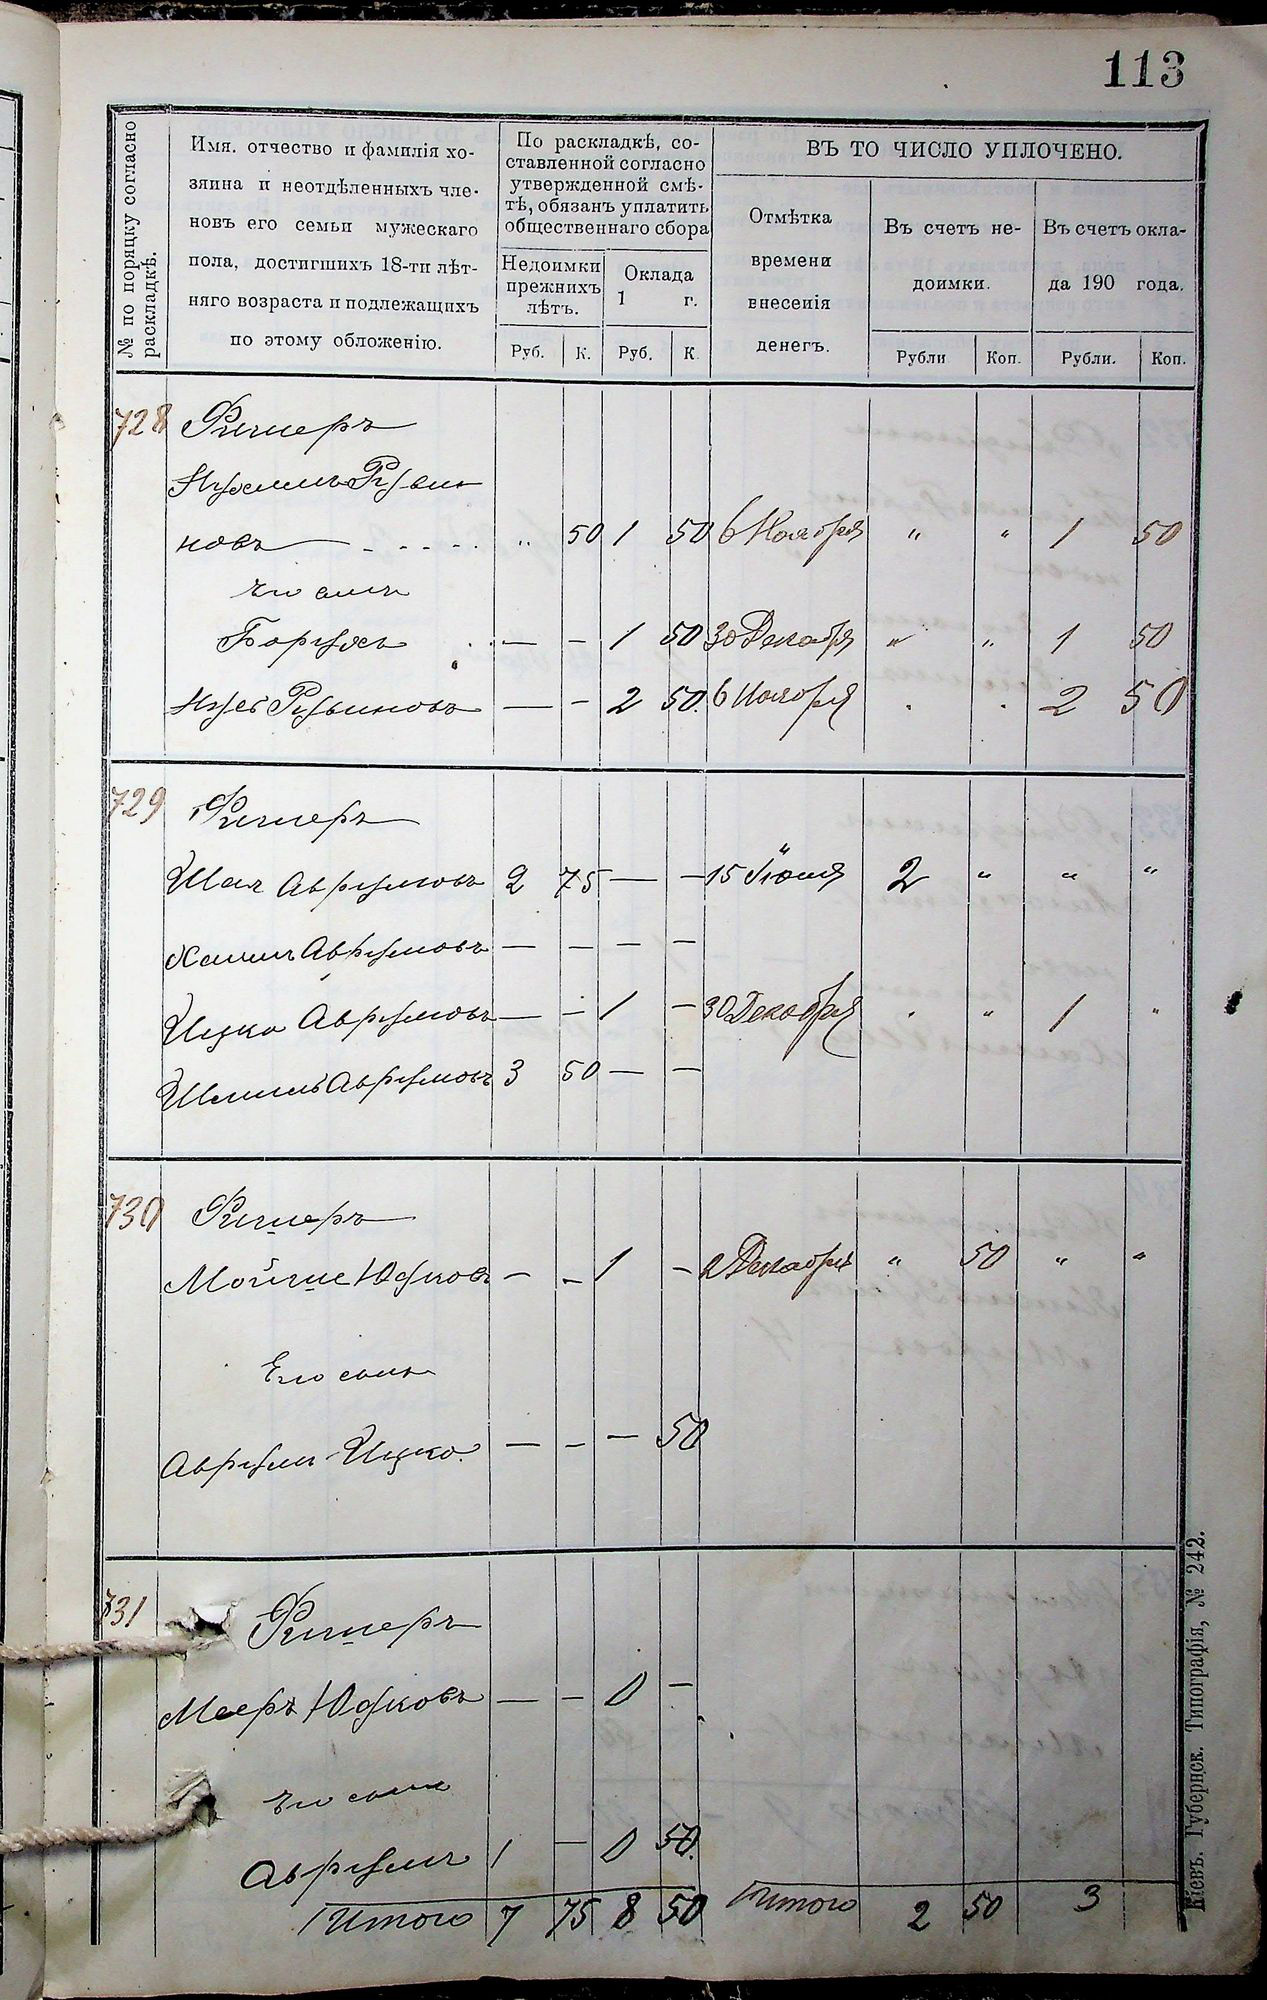 113
№ по порядку согласно раскладкѣ.
Имя, отчество и фамилія хо-
зяина и неотдѣленныхъ чле-
новъ его семьи мужескаго
пола, достигшихъ 18-ти лѣт-
няго возраста и подлежащихъ
по этому обложенію.
По раскладкѣ, со-
ставленной согласно
утвержденной смѣ-
тѣ, обязанъ уплатить
общественнаго сбора
Недоимки
прежнихъ
лѣтъ.
Оклада
1 г.
Руб. К. Руб. К.
ВЪ ТО ЧИСЛО УПЛОЧЕНО.
Отмѣтка
времени
внесенія
денегъ.
Въ счетъ не-
доимки.
Рубли Коп.
Въ счетъ окла-
да 190 года.
Рубли. Коп.
728 Фишеръ
Нухимъ Руви
новъ - - - - - " 50 1 50 6 Ноября " " 1 50
Его сынъ
Борухъ — — 1 50 30 Декабря " " 1 50
Рувиновъ — — 2 50. 6 Ноября . . 2 50
729 Фишеръ
Шая Аврумовъ 2 75 — — 15 Іюня 2 " " "
Хаимъ Аврумовъ — — — —
Ицко Аврумовъ — — 1 — 30 Декабря . " 1 "
Шмиль Аврумовъ 3 50 — —
730 Фишеръ
Мойше Юдковъ — — 1 — 2 Декабря " 50 " "
Его сынъ
Аврумъ-Ицко. — — — 50
731 Фишеръ
Мееръ Юдковъ — — 0 —
Его сынъ
Аврумъ 1 — 0 50.
Итого 7 75 8 50 Итого 2 50 3
Кіевъ. Губернск. Типографія, № 242.